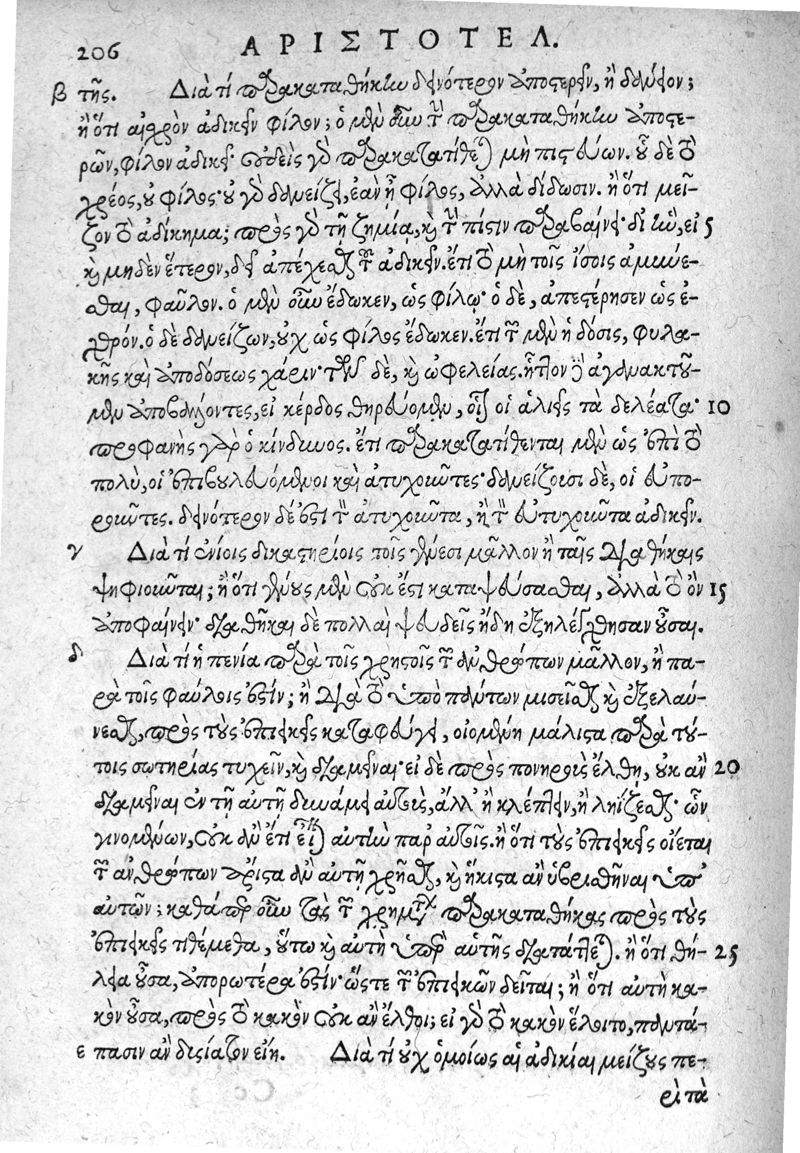 206 ΑΡΙΣΤΟΤΕΛ.
β τῆς. Διὰ τί παρακαταθήκην δεινότερον ἀποστερεῖν, ἢ δάνειον;
ἢ ὅτι αἰσχρὸν ἀδικεῖν φίλον; ὁ μὲν οὖν τὴν παρακαταθήκην ἀποστε-
ρῶν, φίλον ἀδικεῖ· οὐδεὶς γὰρ παρακατατίθεται μὴ πιστεύων. οὗ δὲ τὸ
χρέος, οὐ φίλος· οὐ γὰρ δανείζει, ἐὰν ᾖ φίλος, ἀλλὰ δίδωσιν. ἢ ὅτι μεῖ-
ζον τὸ ἀδίκημα; πρὸς γὰρ τῇ ζημίᾳ, καὶ τὴν πίστιν παραβαίνει· δι' ἣν, εἰ 5
καὶ μηδὲν ἕτερον, δεῖ ἀπέχεσθαι τοῦ ἀδικεῖν. ἔτι τὸ μὴ τοῖς ἴσοις ἀμύνε-
σθαι, φαῦλον. ὁ μὲν οὖν ἔδωκεν, ὡς φίλῳ· ὁ δὲ, ἀπεστέρησεν ὡς ἐ-
χθρόν. ὁ δὲ δανείζων, οὐχ ὡς φίλος ἔδωκεν. ἔτι τοῦ μὲν ἡ δόσις, φυλα-
κῆς καὶ ἀποδόσεως χάριν· τῶν δὲ, καὶ ὠφελείας. ἧττον δὲ ἀγανακτοῦ-
μεν ἀποβαλόντες, εἰ κέρδος θηρεύομεν, οἷον οἱ ἁλιεῖς τὰ δελέατα· 10
προφανὴς γὰρ ὁ κίνδυνος. ἔτι παρακατατίθενται μὲν ὡς ἐπὶ τὸ
πολὺ, οἱ ἐπιβουλευόμενοι καὶ ἀτυχοῦντες· δανείζουσι δὲ, οἱ εὐπο-
ροῦντες. δεινότερον δέ ἐστι τὸν ἀτυχοῦντα, ἢ τὸν εὐτυχοῦντα ἀδικεῖν.
γ Διὰ τί ἐνίοις δικαστηρίοις τοῖς γένεσι μᾶλλον ἢ ταῖς διαθήκαις
ψηφιοῦνται; ἢ ὅτι γένους μὲν οὐκ ἔστι καταψεύσασθαι, ἀλλὰ τὸ ὂν 15
ἀποφαίνειν· διαθῆκαι δὲ πολλαὶ ψευδεῖς ἤδη ἐξηλέγχθησαν οὖσαι.
δ Διὰ τί ἡ πενία παρὰ τοῖς χρηστοῖς τῶν ἀνθρώπων μᾶλλον, ἢ πα-
ρὰ τοῖς φαύλοις ἐστίν; ἢ διὰ τὸ ὑπὸ πάντων μισεῖσθαι καὶ ἐξελαύ-
νεσθαι, πρὸς τοὺς ἐπιεικεῖς καταφεύγει, οἰομένη μάλιστα παρὰ τού-
τοις σωτηρίας τυχεῖν, καὶ διαμένειν· εἰ δὲ πρὸς πονηροὺς ἔλθῃ, οὐκ ἂν 20
διαμεῖναι ἐν τῇ αὐτῇ δυνάμει αὐτοὺς, ἀλλ' ἢ κλέπτειν, ἢ ληίζεσθαι· ὧν
γινομένων, οὐκ ἂν ἔτι εἶναι αὐτὴν παρ' αὐτοῖς. ἢ ὅτι τοὺς ἐπιεικεῖς οἴεται
τῶν ἀνθρώπων ἄριστα ἂν αὐτῇ χρῆσθαι, καὶ ἥκιστα ἂν ὑβρισθῆναι ὑπ'
αὐτῶν; καθάπερ οὖν τὰς τῶν χρημάτων παρακαταθήκας πρὸς τοὺς
ἐπιεικεῖς τιθέμεθα, οὕτω καὶ αὐτὴ ὑπὲρ αὑτῆς διατάττεται. ἢ ὅτι θή- 25
λεια οὖσα, ἀπορωτέρα ἐστίν· ὥστε τῶν ἐπιεικῶν δεῖται; ἢ ὅτι αὐτὴ κα-
κὸν οὖσα, πρὸς τὸ κακὸν οὐκ ἂν ἔλθοι; εἰ γὰρ τὸ κακὸν ἕλοιτο, παντά-
ε πασιν ἂν δυσίατον εἴη. Διὰ τί οὐχ ὁμοίως αἱ ἀδικίαι μείζους πε-
ρὶ τὰ